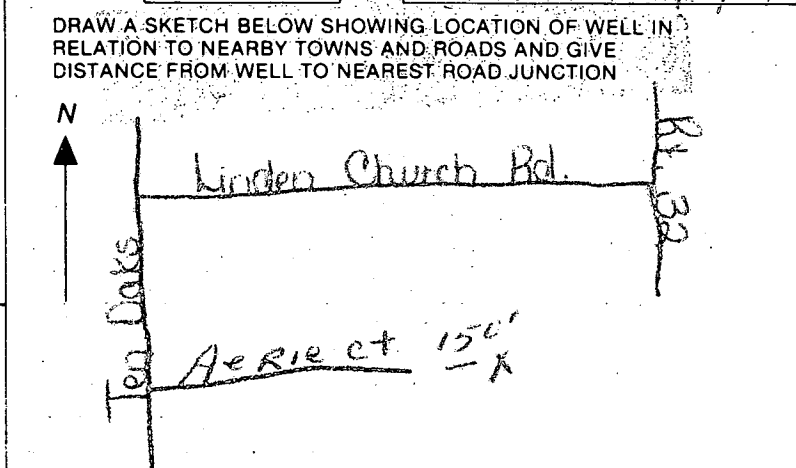 DRAW A SKETCH BELOW SHOWING LOCATION OF WELL IN
RELATION TO NEARBY TOWNS AND ROADS AND GIVE
DISTANCE FROM WELL TO NEAREST ROAD JUNCTION
N
Linden Church Rd.
Rt. 32
Ten Oaks
Aerie ct 150'
X